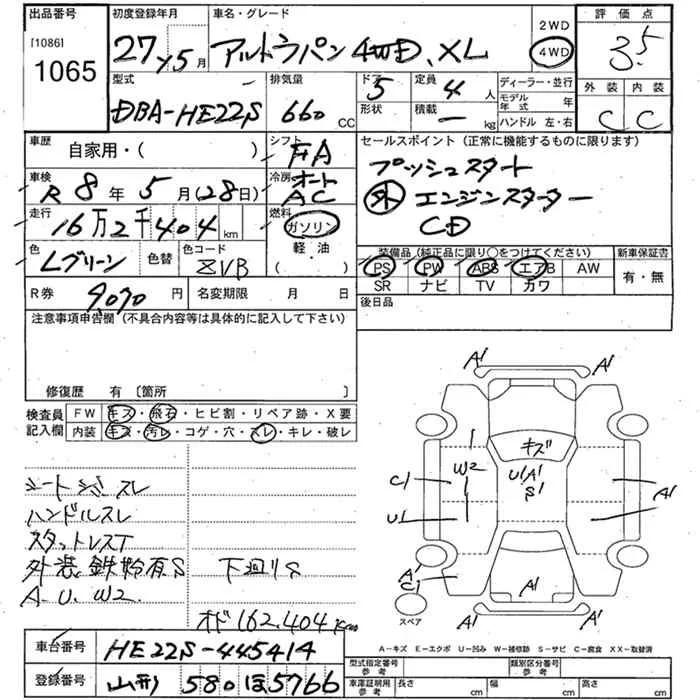 出品番号 初度登録年月 車名・グレード 2WD 4WD 評価点
[1086] 1065 27 y 5月 アルトラパン 4WD、XL 3.5
型式 排気量 ドア 定員 ディーラー・並行 外装 内装
DBA-HE22S 660 CC 5 4人 モデル年式 年 C C
形状 積載 — kg ハンドル 左・右
車歴 自家用・( ) シフト FA
セールスポイント(正常に機能するものに限ります)
車検 R8年5月(28日) 冷房 オート AC
プッシュスタート
外 エンジンスターター
CD
走行 16万2千404km 燃料 ガソリン 軽・油 ( )
色 Lグリーン 色替 色コード ZVB
装備品(純正品に限り○をつけてください) 新車保証書
PS PW ABS エアB AW 有・無
SR ナビ TV カワ
R券 9070円 名変期限 月 日
後日品
注意事項申告欄(不具合内容等は具体的に記入して下さい)
修復歴 有 〔箇所 〕
検査員記入欄 FW キズ・飛石・ヒビ割・リペア跡・X要
内装 キズ・汚レ・コゲ・穴・スレ・キレ・破レ
シートシミスレ
ハンドルスレ
スタットレスT
外装鉄粉有S 下廻りS
A.U.W2
オド162.404km
A1 A1
キズ
W2 U1A1 S1
C1 A1
U1
A1 C1
A1
スペア A1 A1
A−キズ E−エクボ U−凹み W−補修跡 S−サビ C−腐食 XX−取替済
車台番号 HE22S-445414
型式指定番号 類別区分番号
登録番号 山形 580 ほ 5766
車庫証明用参考 長さ cm 幅 cm 高さ cm